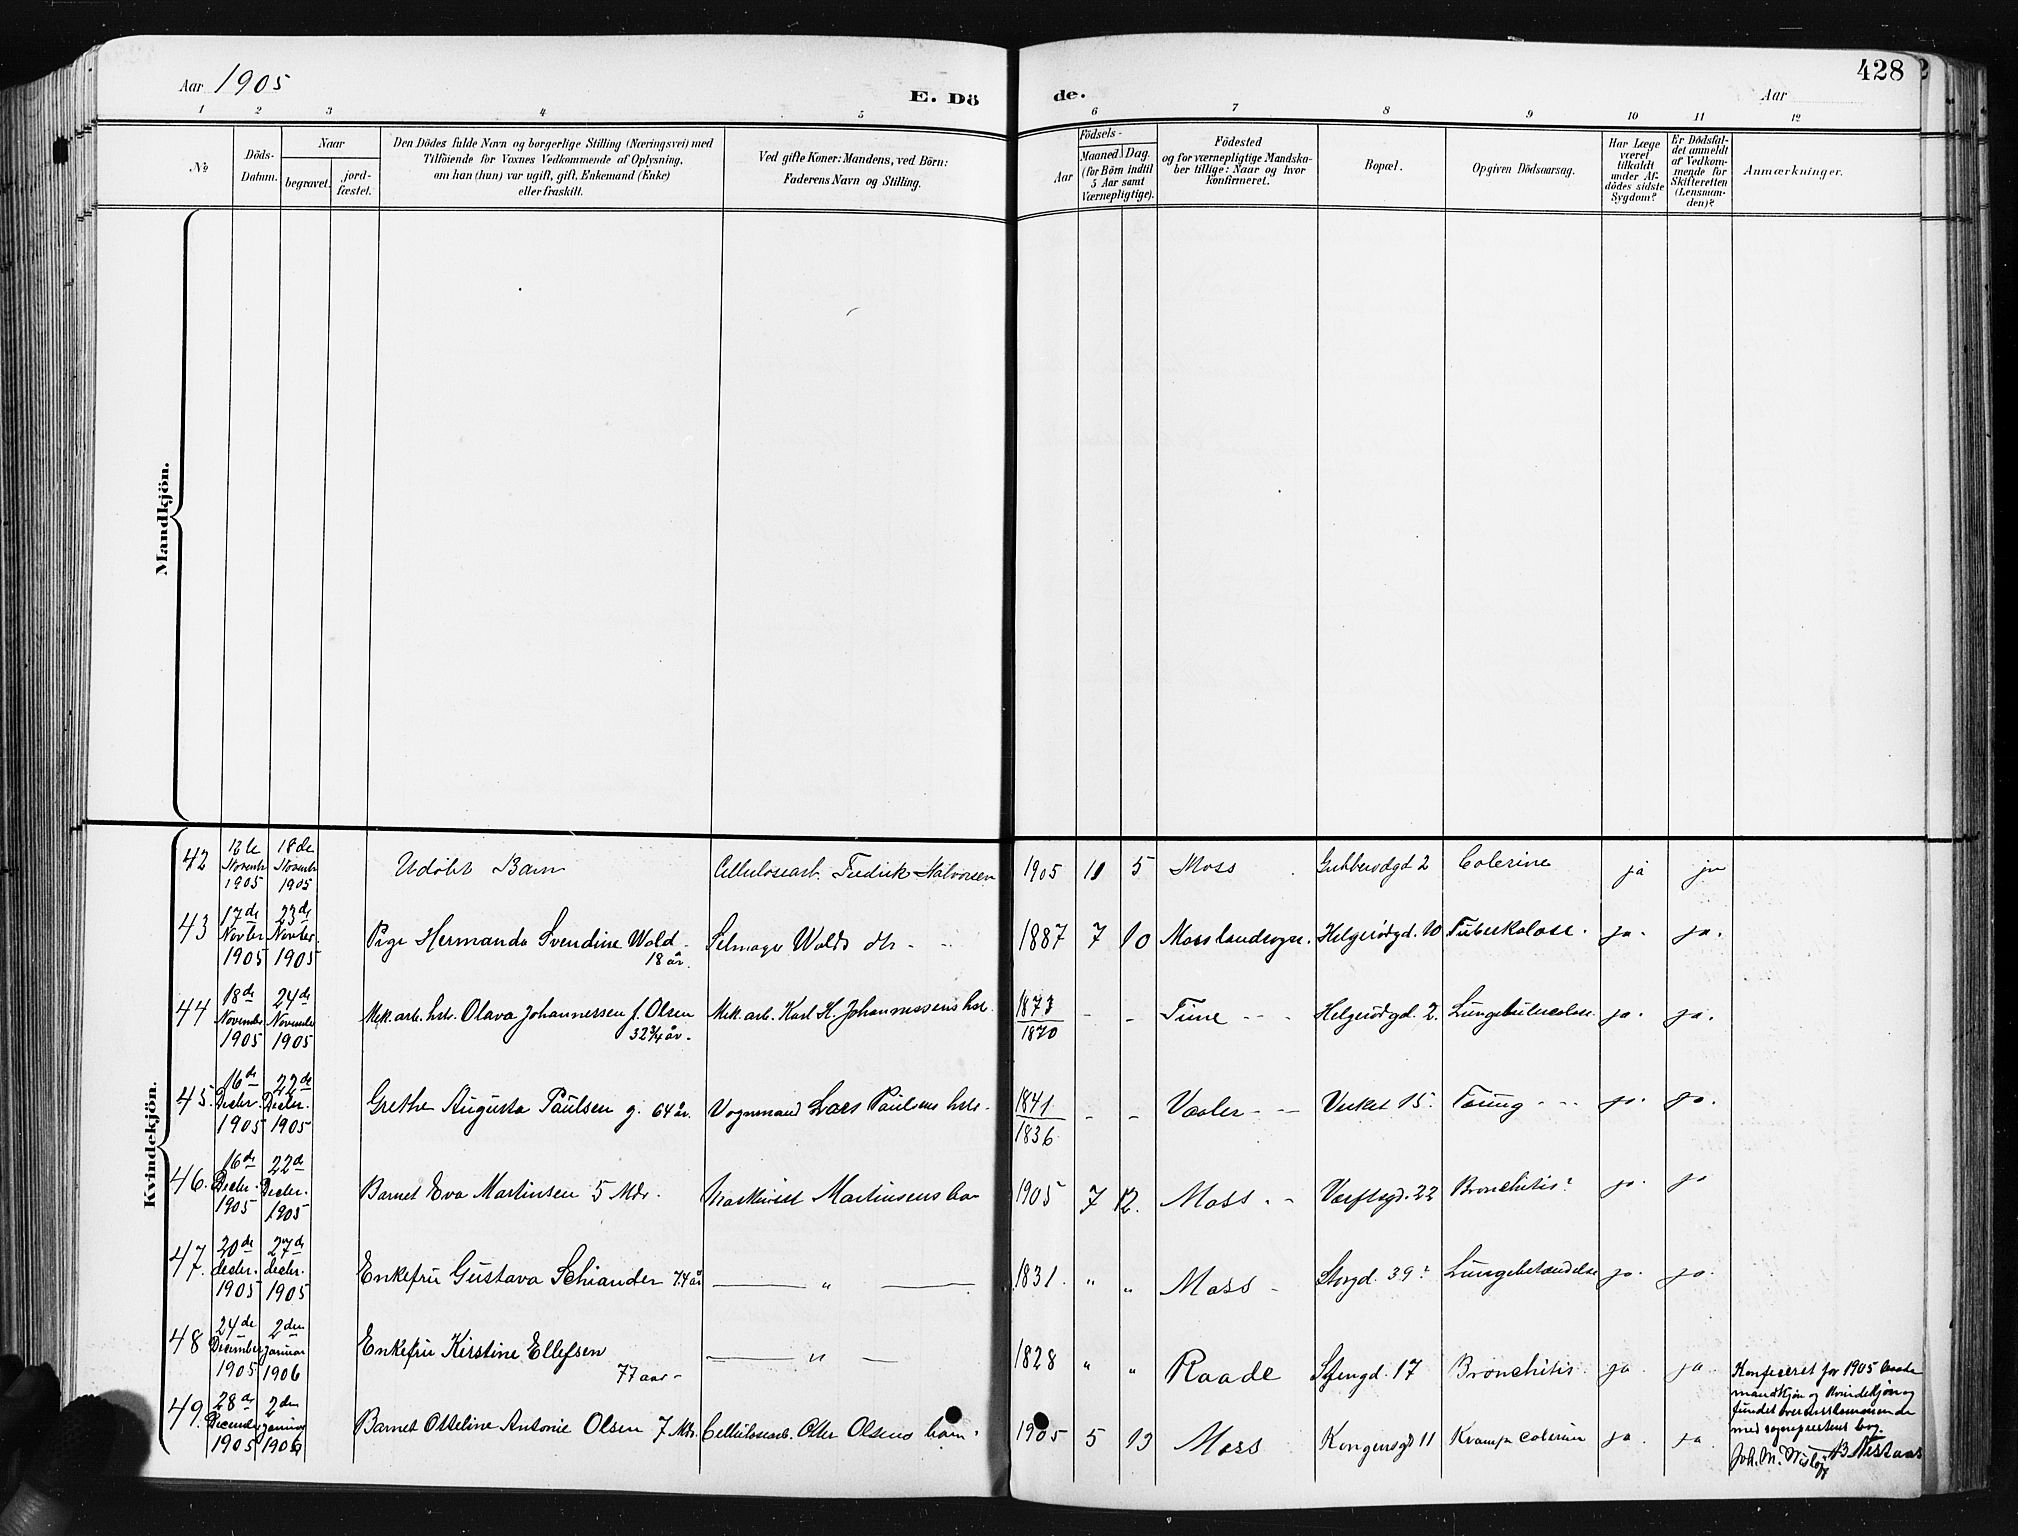 Aar 1905
E. Dö
de.
Aar
428
1 2 3 4 5 6 7 8 9 10 11 12
No
Döds-
Datum.
Naar
begravet.
jord-
fæstet.
Den Dödes fulde Navn og borgerlige Stilling (Næringsvei) med
Tilföiende for Voxnes Vedkommende af Oplysning,
om han (hun) var ugift, gift, Enkemand (Enke)
eller fraskilt.
Ved gifte Koner: Mandens, ved Börn:
Faderens Navn og Stilling.
Födsels-
Aar
Maaned Dag.
(for Börn indtil
5 Aar samt
Værnepligtige).
Födested
og for værnepligtige Mandska-
ber tillige: Naar og hvor
konfirmeret.
Bopæl.
Opgiven Dödsaarsag.
Har Læge
været
tilkaldt
under Af-
dödes sidste
Sygdom?
Er Dödsfal-
det anmeldt
af Vedkom-
mende for
Skifteretten
(Lensman-
den)?
Anmærkninger.
Mandkjön.
Kvindekjön.
42 1905 18de 1905 Udöbt Barn Cellulosearb. Fredrik Halvorsen 1905 5 Moss 2 Colerine ja ja
43 17de Novber 1905 23de Novber. 1905 Pige Hermanda Svendine Wold 18 år. Selmager Wolds dtr 1887 7 10 Moss landsogn. Helgerödgd. 10 Tuberkolose. ja. ja.
44 18de November 1905 24de November 1905 Mek. arb. hstr. Olava Johannessen f. Olsen 32 3/4 år. Mek. arb. Karl H. Johannessens hst. 1873 1870 - - Tune Helgerödgd. 2. Lungetuberculose ja. ja.
45. 16de Decbr. 1905 22de Decbr. 1905 Grethe Augusta Paulsen g. 64 år. Vognmand Lars Paulsens hstr. 1841 1836 - - Vaaler Verket 15. ja. ja.
46. 16de Decbr. 1905 22de Decbr. 1905 Barnet Eva Martinsen 5 Mdr. Martinsens 1905 7 12. Moss Værftsgd. 22 Bronchitis ja. ja
47. 20de decbr. 1905 27de decbr. 1905 Enkefru Gustava Schiander 74 år " 1831. " " Moss Storgd. 39 Lungebetændelse ja. ja.
48 24de December 1905 2den Januar 1906 Enkefru Kirstine Ellefsen 77 aar " 1828 " " Raade 17 Bronchitis ja ja
49. 28de December 1905 2den Januar 1906 Barnet Otteline Antonie Olsen 7 Mdr. Cellulosearb. Olsens barn. 1905 5 13 Moss Kongensgd 11 Krampe colerine ja. ja.
Konfereret for 1905 baade
mandkjön og kvindekjön og
fundet overensstemmende
med sogneprestens bog.
Joh. M.